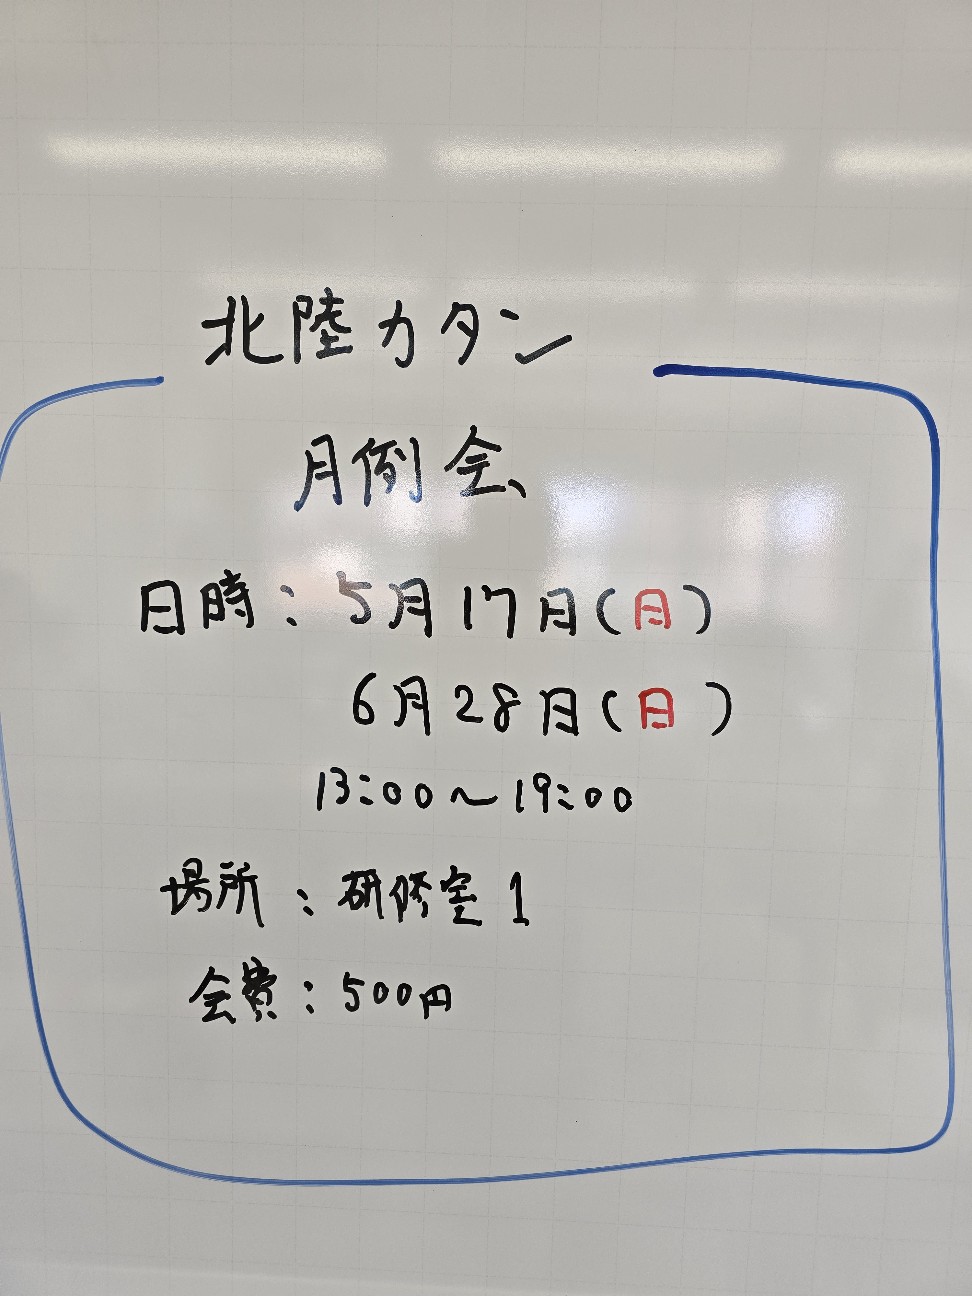 北陸カタン
月例会
日時：5月17日(日)
6月28日(日)
13:00～19:00
場所：研修室1
会費：500円